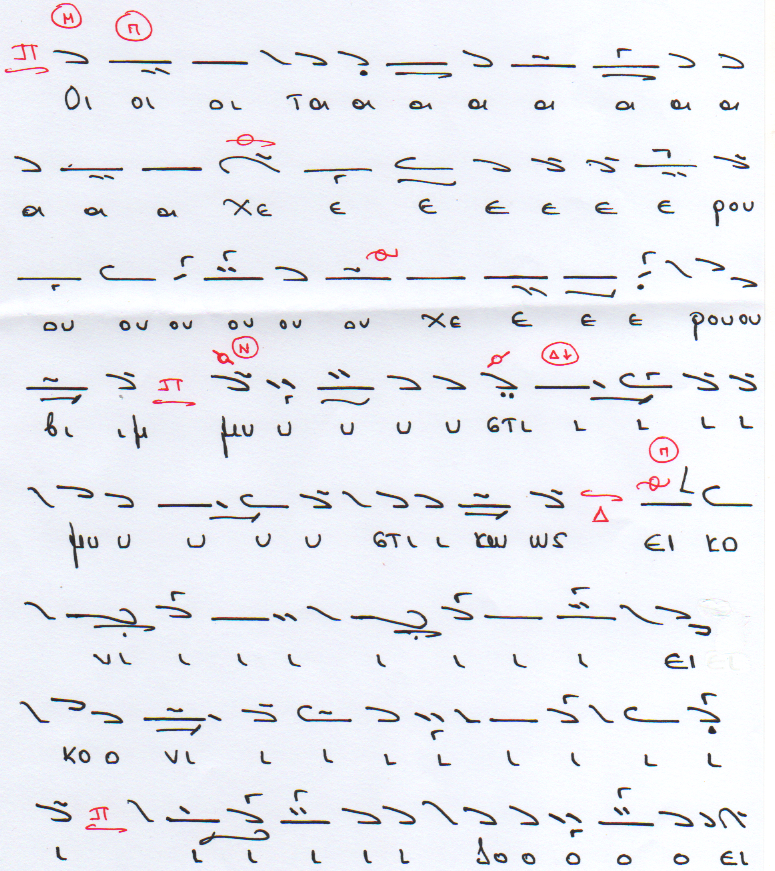 Μ Π
Οι οι οι Τα α α α α α α α
α α α Χε ε ε ε ε ε ε ρου
ου ου ου ου ου ου Χε ε ε ε ρουου
Ν Δ↓
βι ιμ μυ υ υ υ υ στι ι ι ι ι
Π
Δ
μυ υ υ υ υ στι ι κω ως ει κο
νι ι ι ι ι ι ι ι ει
κο ο νι ι ι ι ι ι ι ι ι
ι ι ι ι ι ι ο ο ο ο ει